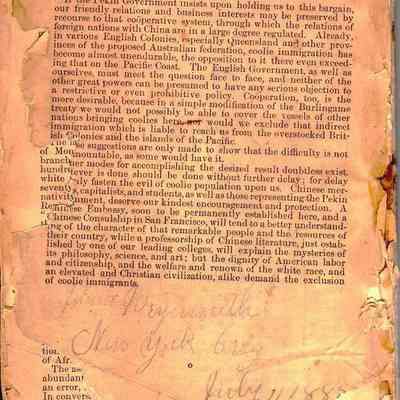 If the Pekin Government insists upon holding us to this bargain,
our friendly relations and business interests may be preserved by
recourse to that coöperative system, through which the relations of
foreign nations with China are in a large degree regulated. Already,
in various English Colonies, especially Queensland and other prov-
inces of the proposed Australian federation, coolie immigration has
become almost unendurable, the opposition to it there even exceed-
ing that on the Pacific Coast. The English Government, as well as
ourselves, must meet the question face to face, and neither of the
other great powers can be presumed to have any serious objection to
a restrictive or even prohibitive policy. Coöperation, too, is the
more desirable, because in a simple modification of the Burlingame
treaty we would not possibly be able to cover the vessels of other
nations bringing coolies here, nor would we exclude that indirect
immigration which is liable to reach us from the overstocked Brit-
ish Colonies and the islands of the Pacific.
suggestions are only made to show that the difficulty is not
of Mou mountable, as some would have it.
branch her modes for accomplishing the desired result doubtless exist,
hundre ever is done should be done without further delay; for delay
white ly fasten the evil of coolie population upon us. Chinese mer-
seventy capitalists, and students, as well as those representing the Pekin
nativity ment, deserve our kindest encouragement and protection. A
Embassy, soon to be permanently established here, and a
Chinese Consulship in San Francisco, will tend to a better understand-
ing of the character of that remarkable people and the resources of
their country, while a professorship of Chinese literature, just estab-
lished by one of our leading colleges, will explain the mysteries of
its philosophy, science, and art; but the dignity of American labor
and citizenship, and the welfare and renown of the white race, and
an elevated and Christian civilization, alike demand the exclusion
of coolie immigrants.
New York City
July
tion.
of Afr
The
abundant
an error,
In convers